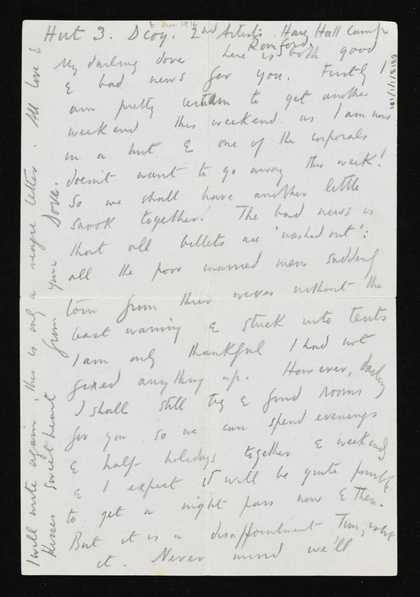 Hut 3. D Coy. 2nd Artists. Hare Hall Camp
Romford
My darling dove here is both good
& bad news for you. Firstly I
am pretty certain to get another
weekend this weekend as I am now
in a hut & one of the corporals
doesn't want to go away this week!
So we shall have another little
snook together! The bad news is
that all billets are 'washed out':
all the poor married men suddenly
torn from their wives without the
least warning & stuck into tents
I am only thankful I had not
fixed anything up. However, darling
I shall still try & find rooms
for you so we can spend evenings
& half-holidays together & weekends
& I expect it will be quite possible
to get a night pass now & then.
But it is a disappointment Tim, isn't
it. Never mind we'll
I will write again: this is only a meagre letter. All love &
Kisses sweetheart from your Doves.